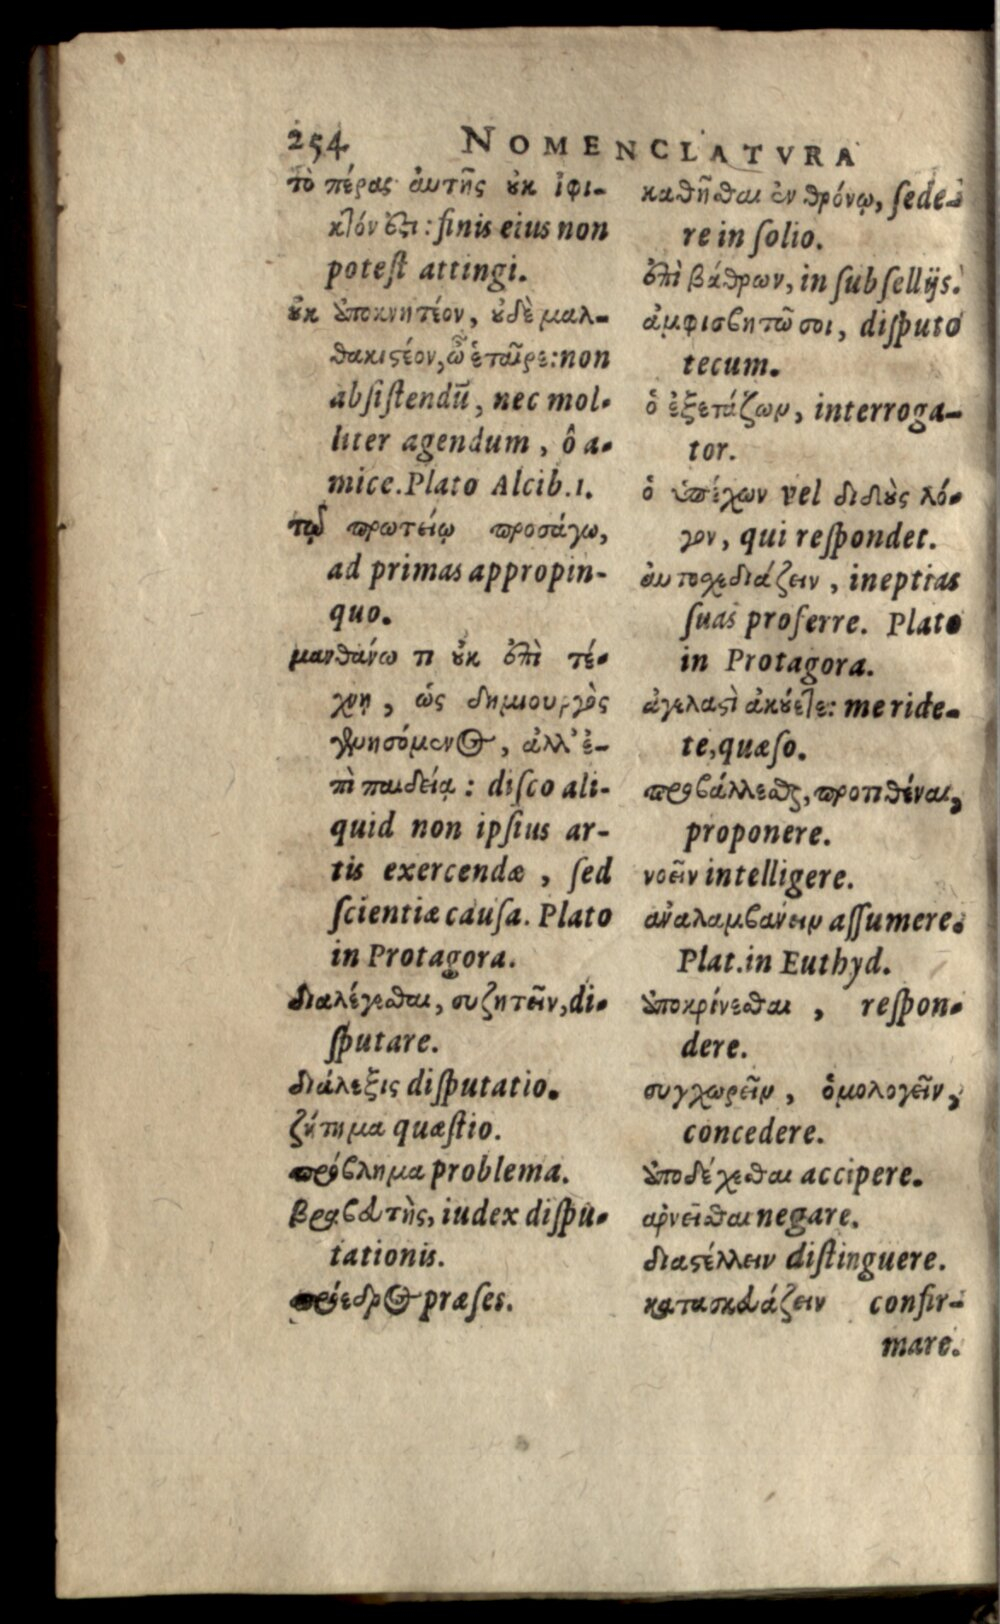 254 NOMENCLATVRA
τὸ πέρας αὐτῆς οὐκ ἐφι-
κτόν ἐστι: finis eius non
potest attingi.
οὐκ ἀποκνητέον, οὐδὲ μαλ-
θακιστέον, ὦ ἑταῖρε: non
absistendū, nec mol-
liter agendum, ô a-
mice. Plato Alcib. 1.
τῷ πρωτείῳ προσάγω,
ad primas appropin-
quo.
μανθάνω τι οὐκ ἐπὶ τέ-
χνῃ, ὡς δημιουργὸς
γενησόμενος, ἀλλ' ἐ-
πὶ παιδείᾳ: disco ali-
quid non ipsius ar-
tis exercendæ, sed
scientiæ causa. Plato
in Protagora.
διαλέγεσθαι, συζητεῖν, di-
sputare.
διάλεξις disputatio.
ζήτημα quæstio.
πρόβλημα problema.
βραβευτὴς, iudex dispu-
tationis.
πρόεδρος præses.
καθῆσθαι ἐν θρόνῳ, sede-
re in solio.
ἐπὶ βάθρων, in subsellijs.
ἀμφισβητῶ σοι, disputo
tecum.
ὁ ἐξετάζων, interroga-
tor.
ὁ ὑπέχων vel διδοὺς λό-
γον, qui respondet.
αὐτοσχεδιάζειν, ineptias
suas proferre. Plato
in Protagora.
ἀγελαστὶ ἀκούετε: me ride-
te, quæso.
προβάλλεσθαι, προτιθέναι,
proponere.
νοεῖν intelligere.
ἀναλαμβάνειν assumere.
Plat. in Euthyd.
ἀποκρίνεσθαι, respon-
dere.
συγχωρεῖν, ὁμολογεῖν,
concedere.
ἀποδέχεσθαι accipere.
ἀρνεῖσθαι negare.
διαστέλλειν distinguere.
κατασκευάζειν confir-
mare.